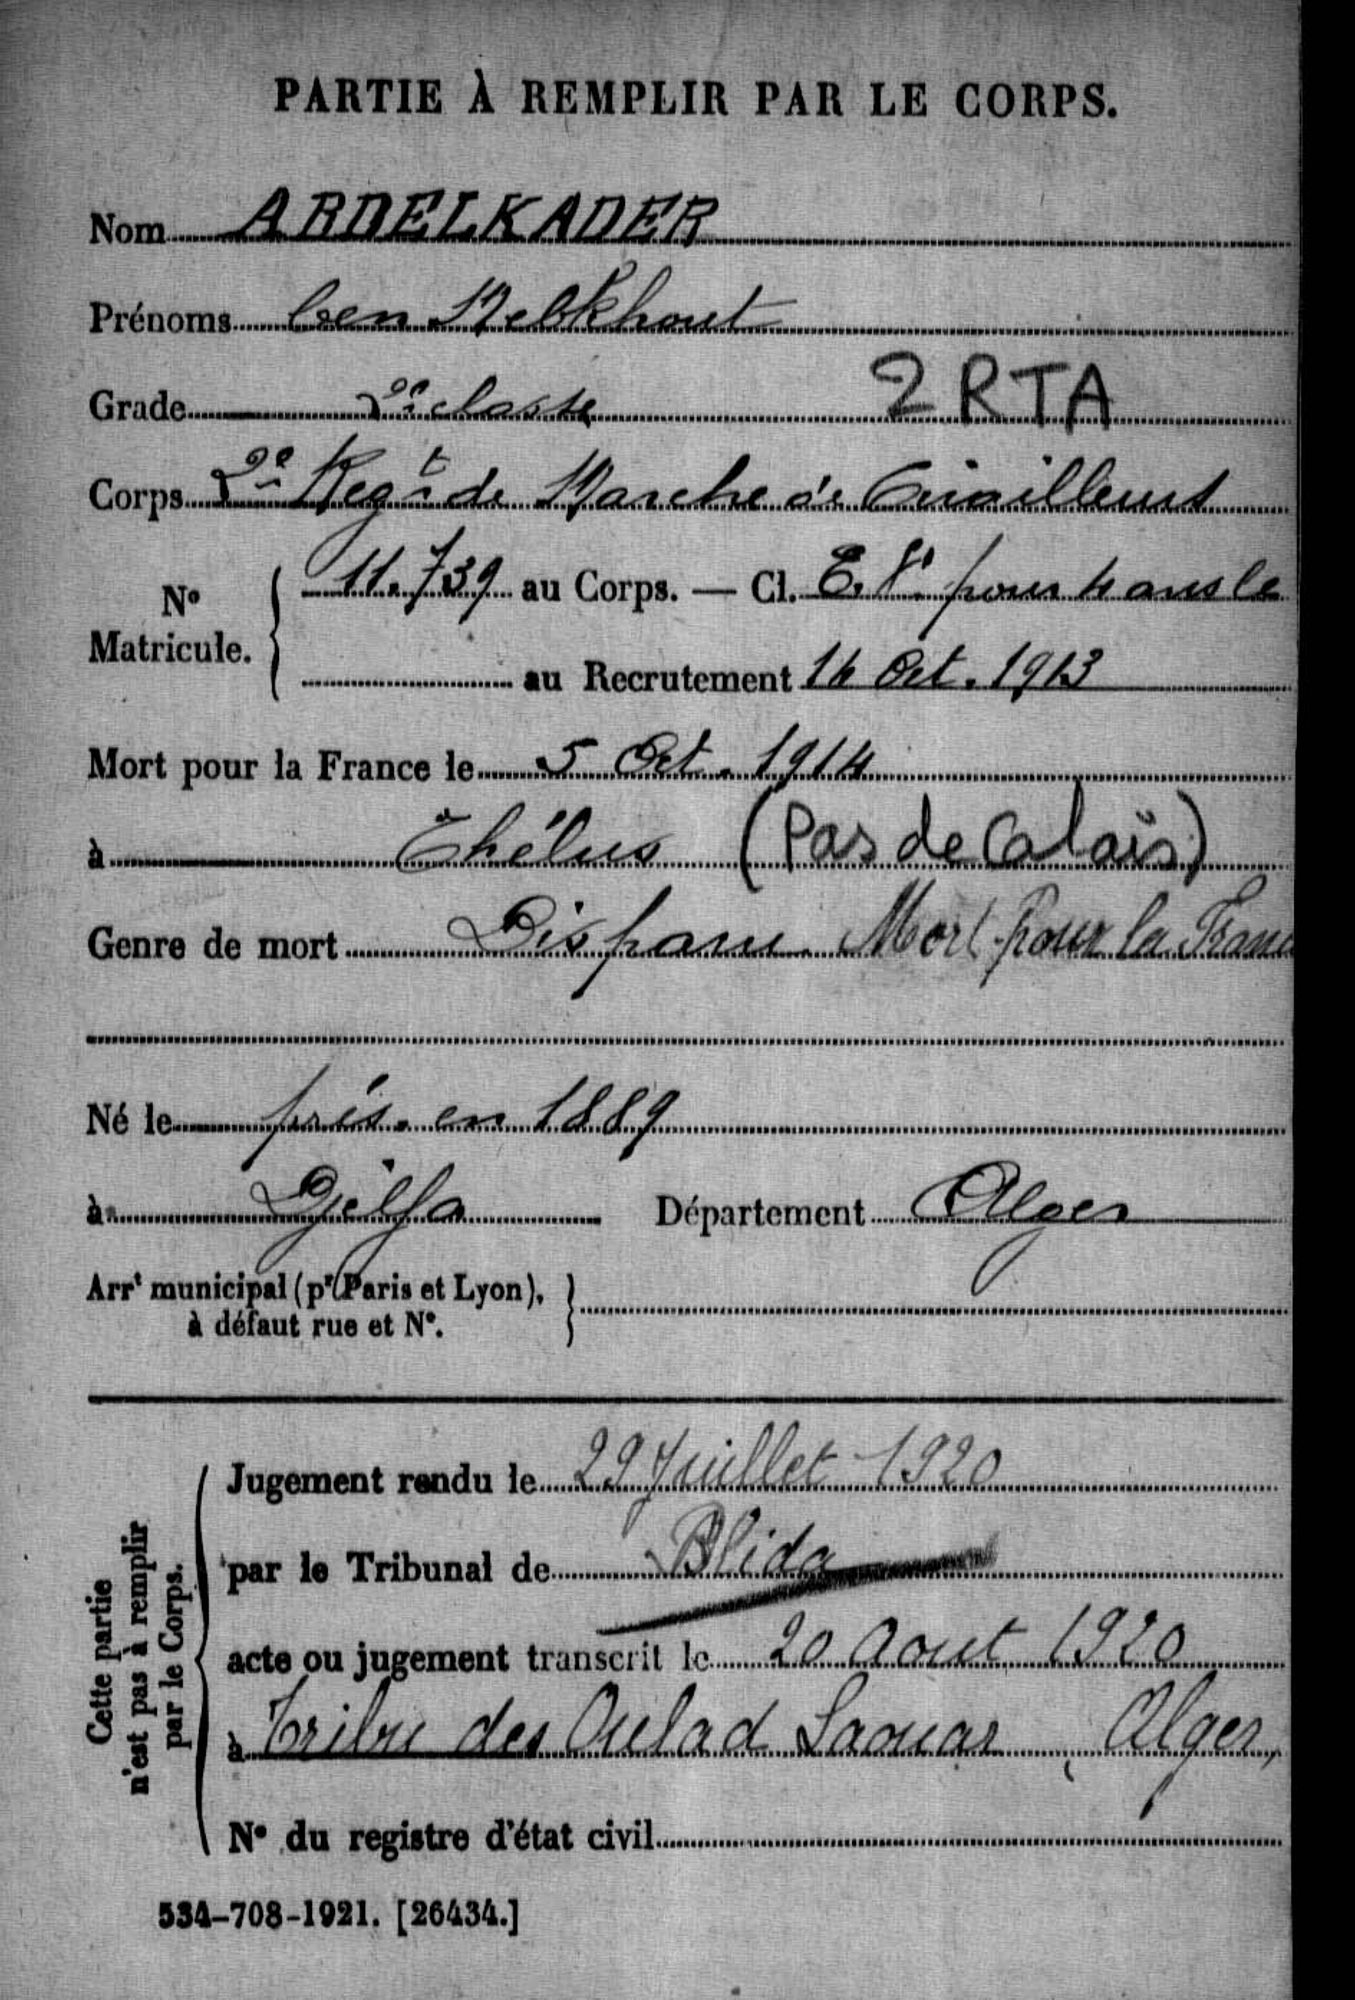 PARTIE À REMPLIR PAR LE CORPS.
Nom ABDELKADER
Prénoms ben Mebkhout
Grade 2e classe 2 RTA
Corps 2e Regt de Marche de Tirailleurs
No Matricule. 11.739 au Corps. — Cl. E.V. pour 4 ans le
au Recrutement 14 Oct. 1913
Mort pour la France le 5 Oct. 1914
à Thélus (Pas de Calais)
Genre de mort Disparu Mort pour la France
Né le prés. en 1889
à Djelfa Département Alger
Arrt municipal (pr Paris et Lyon),
à défaut rue et No.
Cette partie
n'est pas à remplir
par le Corps.
Jugement rendu le 29 Juillet 1920
par le Tribunal de Blida
acte ou jugement transcrit le 20 Aout 1920
à Tribu des Oulad Laouar, Alger,
No du registre d'état civil
534-708-1921. [26434.]